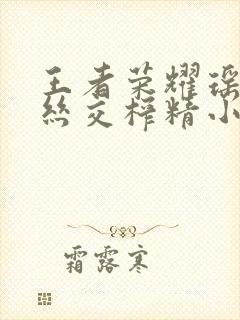 王者荣耀瑶
丝交榨精小
霜露寒